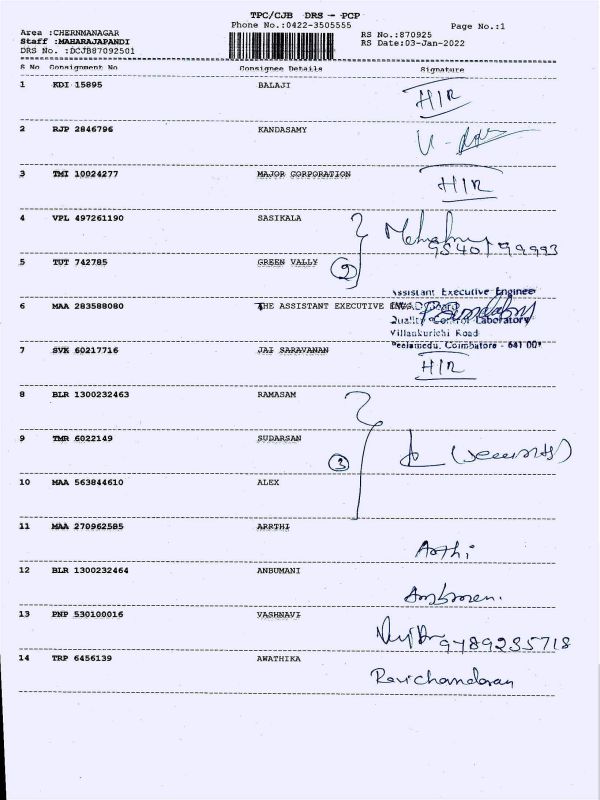 TPC/CJB DRS - PCP
Phone No.:0422-3505555 Page No.:1
Area :CHERNMANAGAR RS No.:870925
Staff :MAHARAJAPANDI RS Date:03-Jan-2022
DRS No. :DCJB87092501
S No Consignment No Consignee Details Signature
1 KDI 15895 BALAJI
H/R
2 RJP 2846796 KANDASAMY
3 TMI 10024277 MAJOR CORPORATION
H/R
4 VPL 497261190 SASIKALA
5 TUT 742785 GREEN VALLY
2
Assistant Executive Engineer
6 MAA 283588080 THE ASSISTANT EXECUTIVE
Quality Control Laboratory
Villankurichi Road
Peelamedu, Coimbatore - 641 004
7 SVK 60217716 JAI SARAVANAN
H/R
8 BLR 1300232463 RAMASAM
9 TMR 6022149 SUDARSAN
3
10 MAA 563844610 ALEX
11 MAA 270962585 ARRTHI
Arthi
12 BLR 1300232464 ANBUMANI
13 PNP 530100016 VASHNAVI
9789235718
14 TRP 6456139 AWATHIKA
Ravichandaran